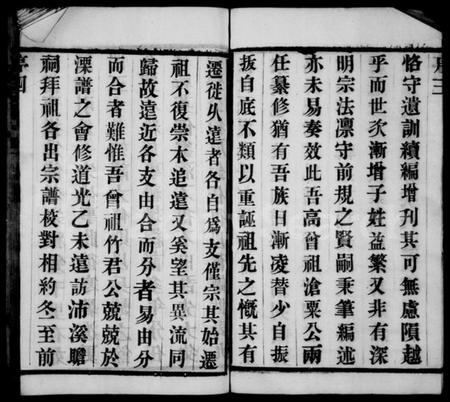 恪守遺訓續編增刊其可無慮隕越
乎而世次漸增子姓益繁又非有深
明宗法凛守前規之賢嗣秉筆編述
亦未易奏效此吾高曾祖滄粟公兩
任纂修猶有吾族日漸凌替少自振
拔自底不類以重誣祖先之慨其有
遷徙从遠者各自為支僅宗其始遷
祖不復崇本追遠又奚望其異流同
歸故遠近各支由合而分者易由分
而合者難惟吾曾祖竹君公兢兢於
溧譜之會修道光乙未遠訪沛溪瞻
祠拜祖各出宗譜校對相約冬至前